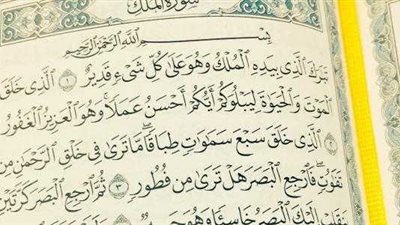 سُورَةُ المُلْكِ
بِسْمِ اللَّهِ الرَّحْمَٰنِ الرَّحِيمِ
تَبَٰرَكَ الَّذِي بِيَدِهِ الْمُلْكُ وَهُوَ عَلَىٰ كُلِّ شَيْءٍ قَدِيرٌ ١ الَّذِي خَلَقَ
الْمَوْتَ وَالْحَيَوٰةَ لِيَبْلُوَكُمْ أَيُّكُمْ أَحْسَنُ عَمَلًا وَهُوَ الْعَزِيزُ الْغَفُورُ
٢ الَّذِي خَلَقَ سَبْعَ سَمَٰوَٰتٍ طِبَاقًا مَّا تَرَىٰ فِي خَلْقِ الرَّحْمَٰنِ مِن
تَفَٰوُتٍ فَارْجِعِ الْبَصَرَ هَلْ تَرَىٰ مِن فُطُورٍ ٣ ثُمَّ ارْجِعِ الْبَصَرَ كَرَّتَيْنِ
يَنقَلِبْ إِلَيْكَ الْبَصَرُ خَاسِئًا وَهُوَ